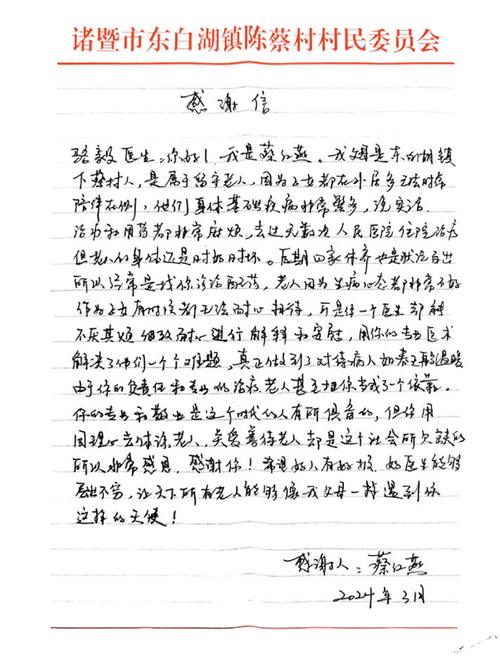 诸暨市东白湖镇陈蔡村村民委员会
感谢信
骆毅医生：你好！我是蔡红燕。我父母是东白湖镇
下蔡村人，是属于留守老人，因为子女都在外居多无法时常
陪伴在侧，他们身体基础疾病非常繁多，说实话
治疗和用药都非常麻烦，去过无数次人民医院住院治疗
但老人的身体还是时好时坏。后期回家休养也是状况百出
所以经常是找你诊治配药，老人因为生病心态都非常不好
作为子女有时候都无法耐心相待，可是你一个医生却能
不厌其烦细致耐心进行解释和安慰，用你的专业医术
解决了他们一个个难题，真正做到了对待病人如亲人般温暖
由于你的负责任和专业的治疗，老人甚至把你当成了一个依靠。
你的专业和敬业是这个时代的人有所俱备的，但你用
同理心去体谅老人，关爱善待老人却是这个社会所欠缺的
所以非常感恩，感谢你！希望好人有好报，好医生能够
层出不穷，让天下所有老人能够像我父母一样遇到你
这样的天使！
感谢人：蔡红燕
2024年3月